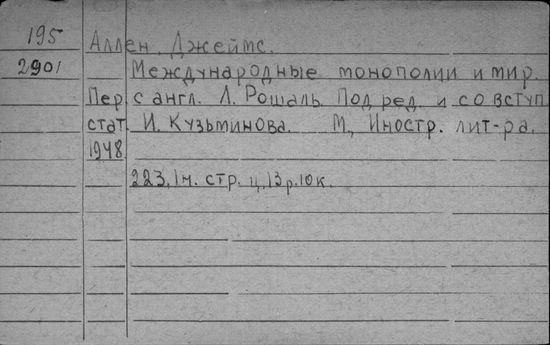 195 Аллен, Джеймс.
2901 Международные монополии и мир.
Пер. с англ. Л. Рошаль. Под ред. и со вступ.
стат. И. Кузьминова. М., Иностр. лит-ра,
1948.
223, 1 н. стр. ц. 13 р. 10 к.